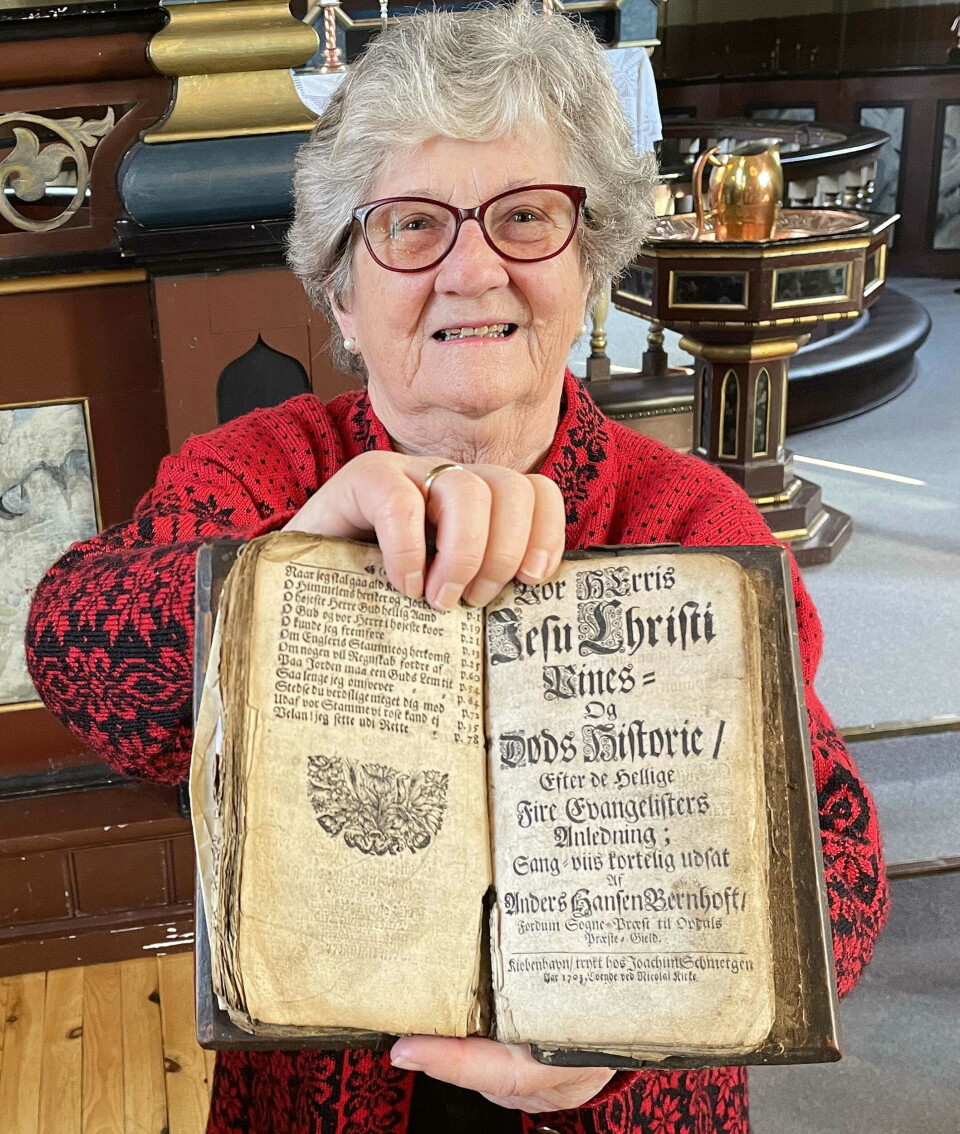 Naar jeg skal gaa ald
O Himmelens herster og Jordens p.1
O høiste Herre Gud hellig Aand p.19
O Gud og vor Herre i høiste koor p.21
O kunde jeg fremføre p.13
Om Engleris Stamme og herkomst p.25
Om nogen vil Regnskab fordre af p.60
Paa Jorden maa een Guds Lem til p.54
Saa lenge jeg omsvever p.64
Stedse du verdslige meget dig med p.72
Udaf vor Stamme vi rose kand ej p.35
Velan! jeg sette udi Rette p.78
Vor HErris
Jesu Christi
Pines-
Og
Døds Historie/
Efter de Hellige
Fire Evangelisters
Anledning;
Sang-viis kortelig udsat
Af
Anders Hansen Bernhoft/
Fordum Sogne-Præst til Opdals
Præste-Gield.
Kiøbenhavn/ trykt hos Joachim Schmetgen
Aar 1703,